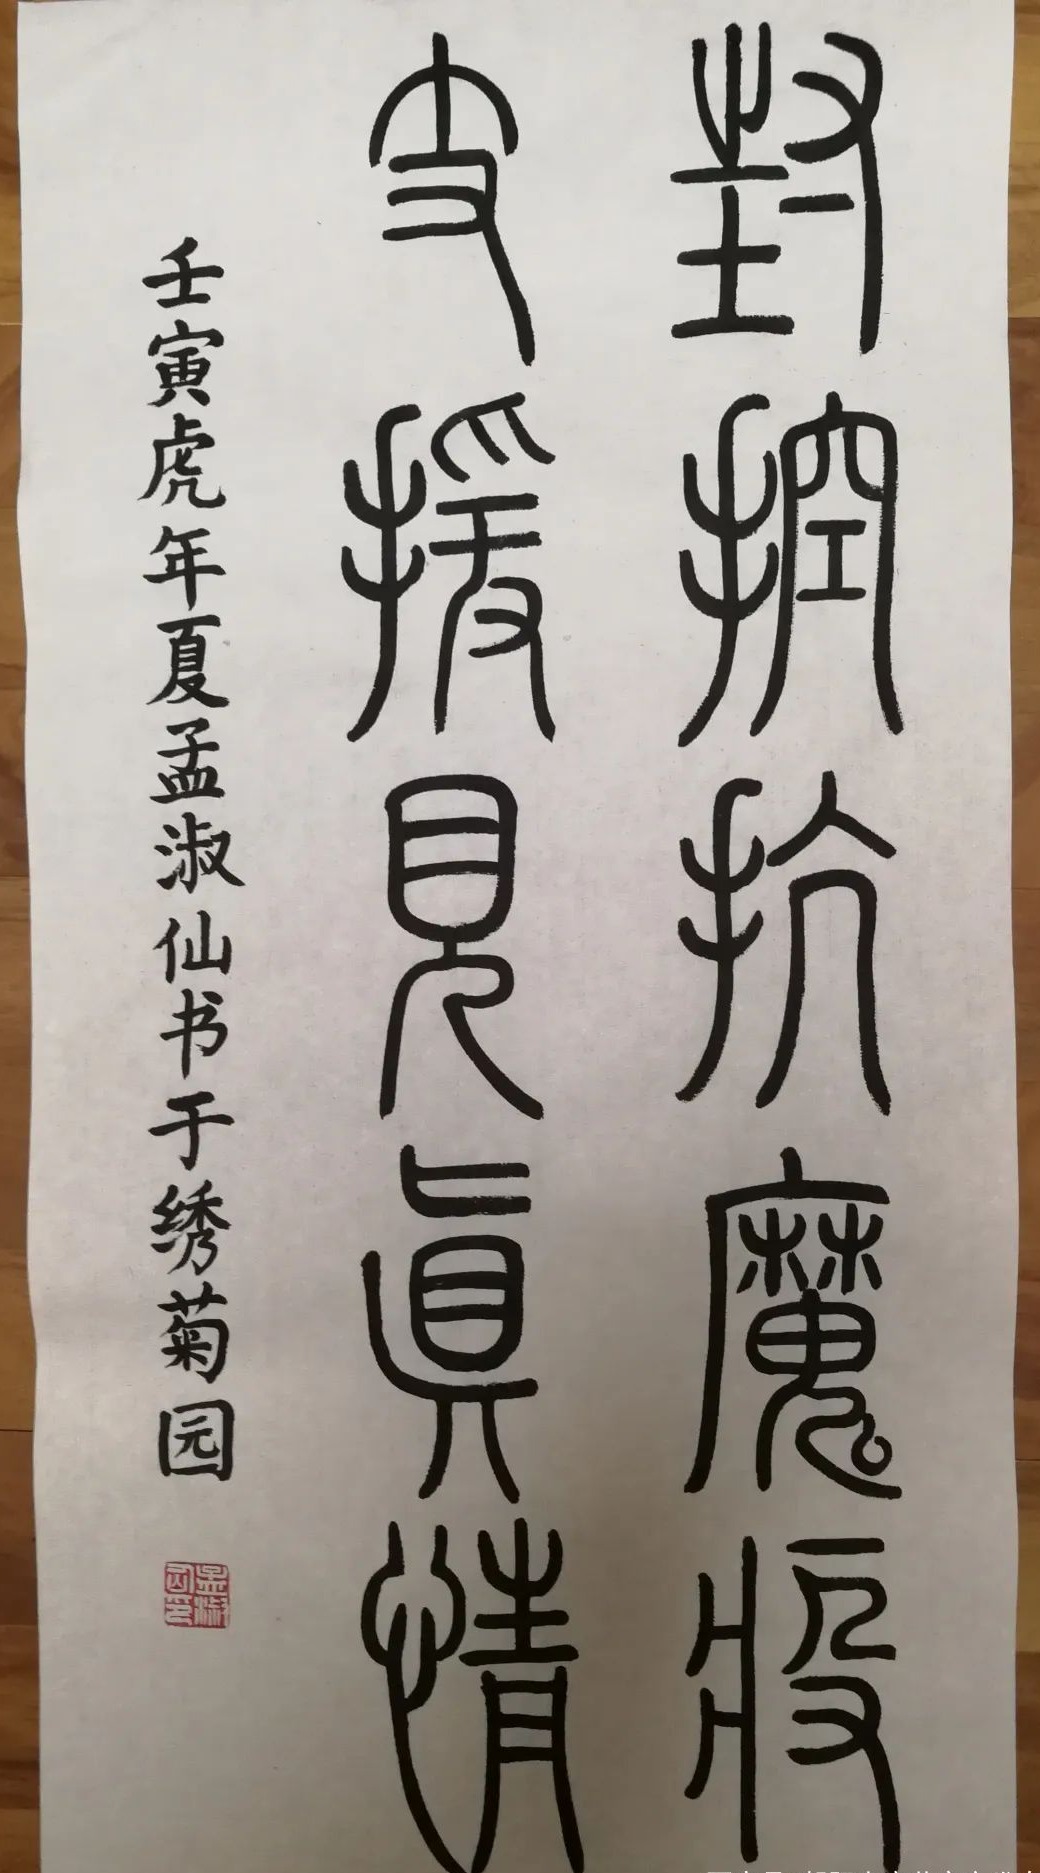 封控抗魔疫
支援見眞情
壬寅虎年夏孟淑仙书于绣菊园
孟淑仙印